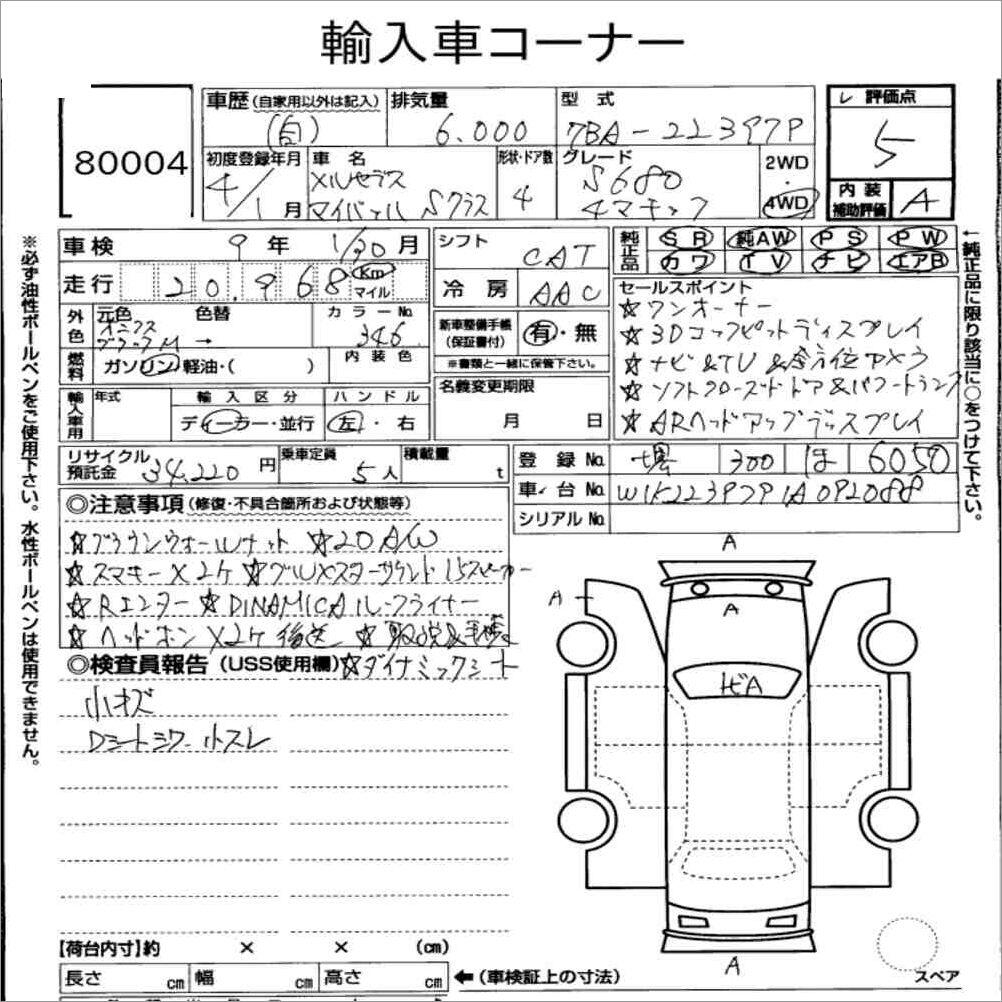 輸入車コーナー
80004
車歴 (自家用以外は記入) 排気量 型式 レ 評価点
(自) 6.000 7BA-223979 5
初度登録年月 車名 形状・ドア数 グレード 2WD・4WD
4/1月 メルセデス マイバッハ Sクラス 4 S680 4マチック
内装補助評価 A
車検 9年 1/30月 シフト CAT
純正品 SR 純AW PS PW
カワ TV ナビ エアB
走行 20,968 Km マイル 冷房 AAC
セールスポイント
☆ワンオーナー
外色 元色 色替 カラーNo.
オニクスブラックM → 346
新車整備手帳(保証書付) 有・無
☆3Dコックピットディスプレイ
燃料 ガソリン 軽油・( ) 内装色
※書類と一緒に保管下さい。
☆ナビ&TV&全方位カメラ
輸入車用 年式 輸入区分 ハンドル
ディーラー・並行 左・右
名義変更期限
月 日
☆ソフトクローズドドア&パワートランク
☆ARヘッドアップディスプレイ
リサイクル預託金 34,220円 乗車定員 5人 積載量 t
登録No. 堺 300 ほ 6050
車台No. W1K2239791A092088
シリアルNo.
◎注意事項(修復・不具合箇所および状態等)
☆ブラウンウォールナット ☆20AW
☆スマキー×2ケ ☆ブルメスターサウンド 15スピーカー
☆Rエンター ☆DINAMICAルーフライナー
☆ヘッドホン×2ケ後送 ☆取説&手帳
◎検査員報告(USS使用欄) ☆ダイナミックシート
小キズ
Dシートシワ 小スレ
A
A
A
トビA
A
スペア
【荷台内寸】約 × × (cm)
長さ cm 幅 cm 高さ cm ←(車検証上の寸法)
※必ず油性ボールペンをご使用下さい。水性ボールペンは使用できません。
←純正品に限り該当に○をつけて下さい。